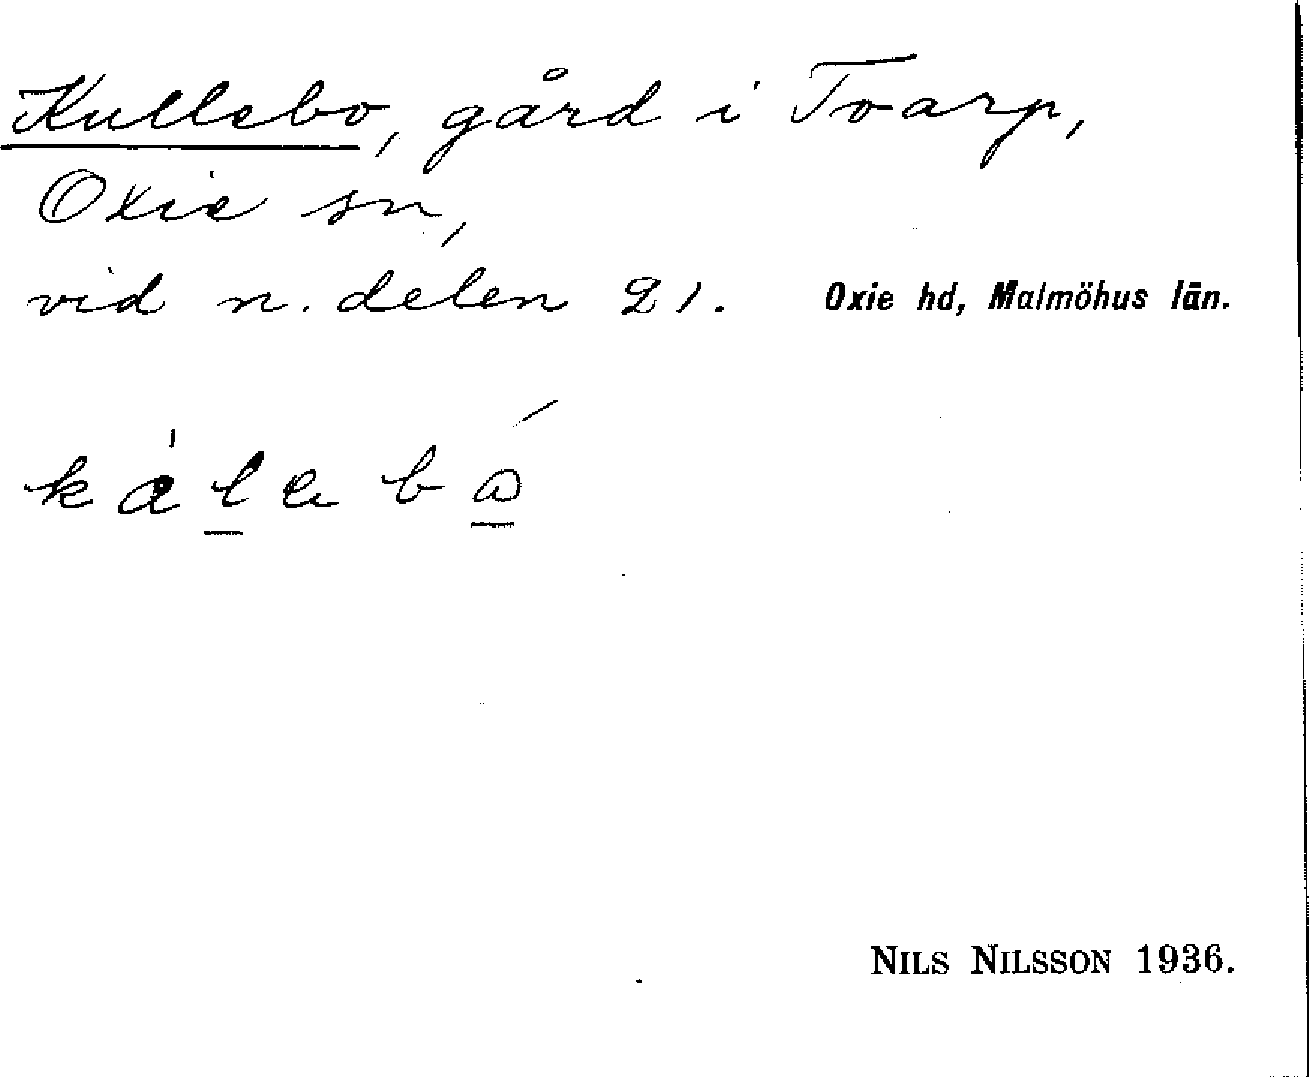 Kullebo, gård i Toarp,
Oxie sn,
vid n. delen 21. Oxie hd, Malmöhus län.
NILS NILSSON 1936.